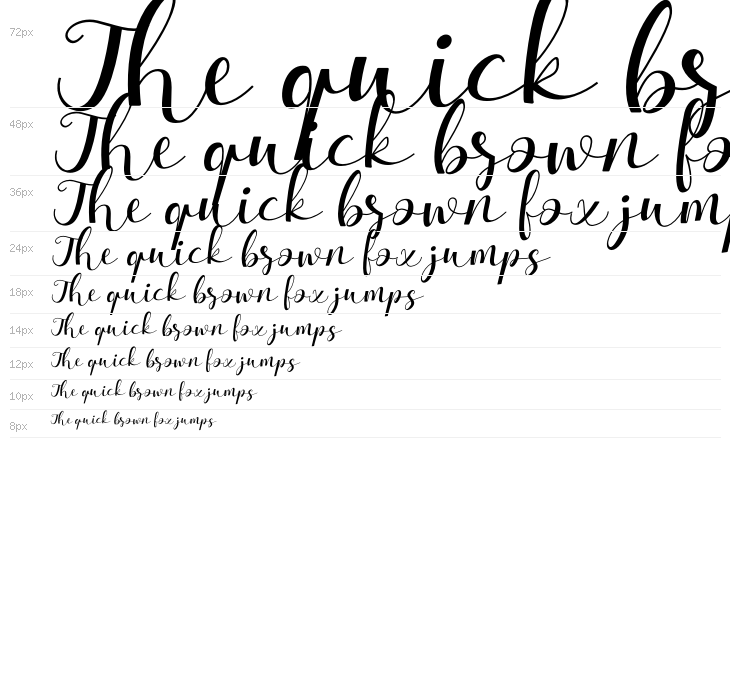 72px The quick br
48px The quick brown fo
36px The quick brown fox jump
24px The quick brown fox jumps
18px The quick brown fox jumps
14px The quick brown fox jumps
12px The quick brown fox jumps
10px The quick brown fox jumps
8px The quick brown fox jumps